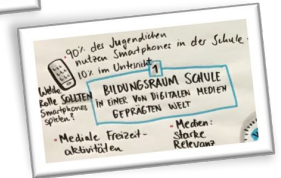 90% des Jugendlichen
nutzen Smartphones in der Schule.
10% im Unterricht
1
Welche
Rolle SOLLTEN
Smartphones
spielen?
BILDUNGSRAUM SCHULE
IN EINER VON DIGITALEN MEDIEN
GEPRÄGTEN WELT
• Mediale Freizeit-
aktivitäten
• Medien:
starke
Relevanz